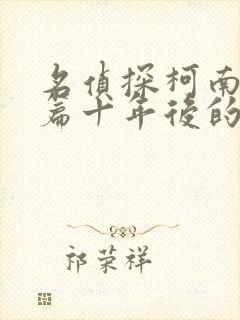 名偵探柯南
篇十年後的
祁荣祥